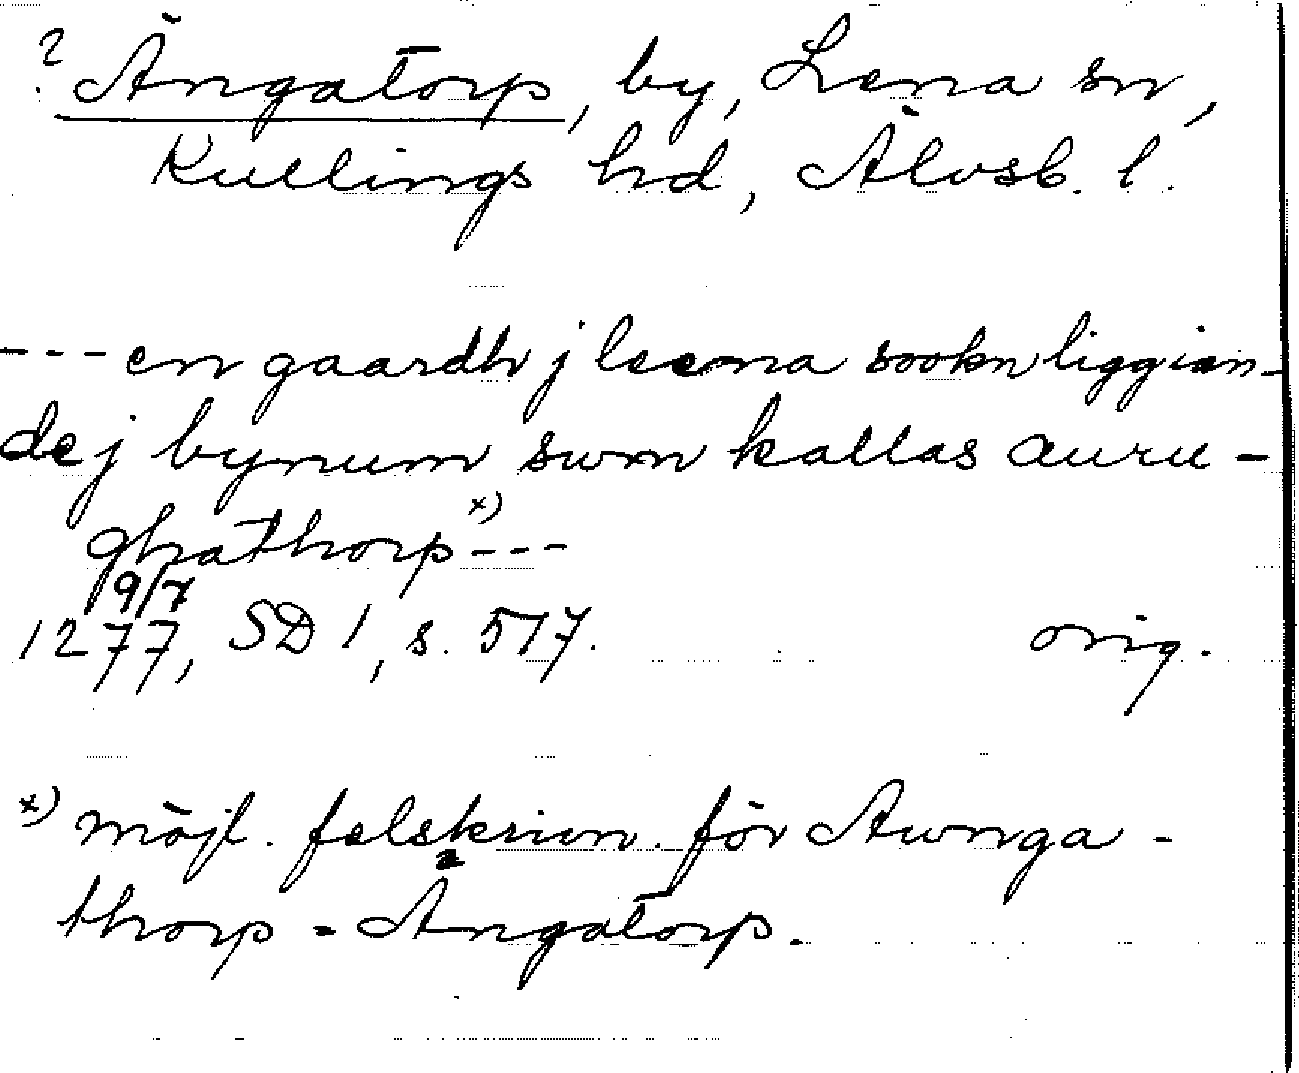 ? Ängatorp, by, Lena sn,
Kullings hd, Älvsb. l.
--- en gaardh j leena sookn liggian-
de j bynum swm kallas auru-
ghathorp x) ---
1277 9/7, SD 1, s. 517. orig.
x) möjl. felskrivn. för Awnga-
thorp - Ängatorp.